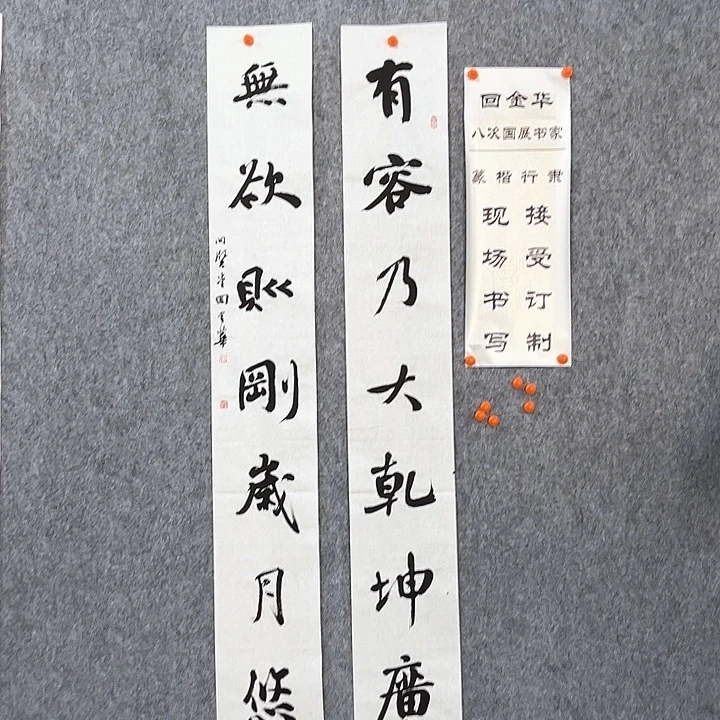 有容乃大乾坤廣
無欲則剛歲月悠
回金華
回金华
八次国展书家
篆楷行隶
现场书写
接受订制